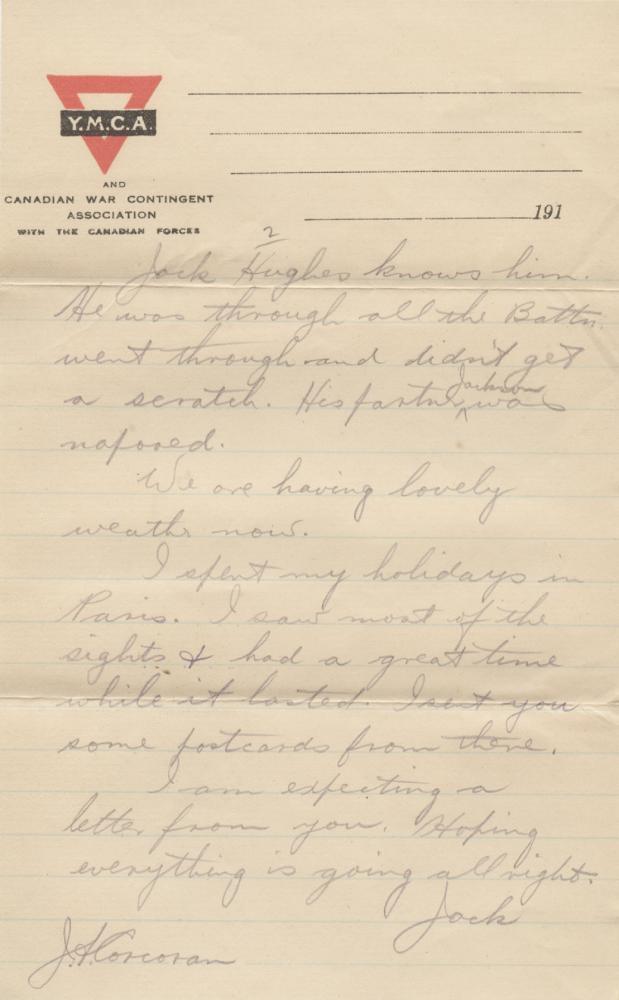 Y.M.C.A.
AND
CANADIAN WAR CONTINGENT
ASSOCIATION
WITH THE CANADIAN FORCES
191
2
Jack Hughes knows him.
He was through all the Battn.
went through and didn't get
a scratch. His partner Jackson was
We are having lovely
weather now.
I spent my holidays in
Paris. I saw most of the
sights & had a great time
while it lasted. I sent you
some postcards from there.
I am expecting a
letter from you. Hoping
everything is going allright.
Jack
J.H. Corcoran